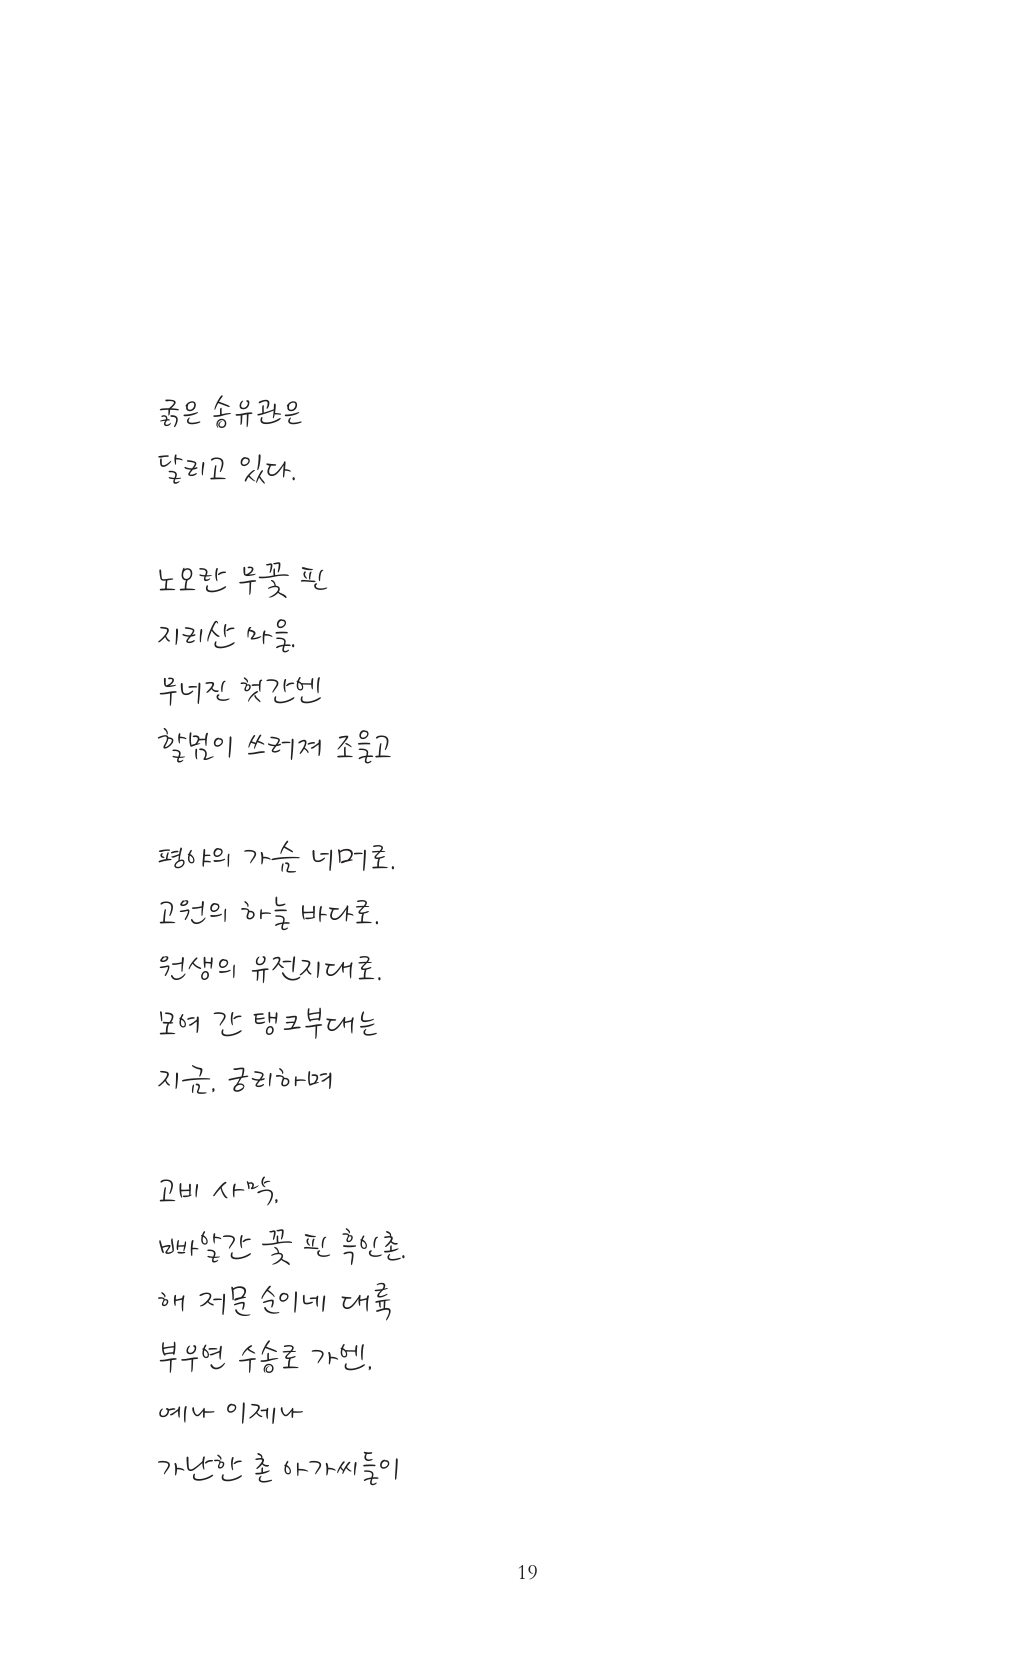 굵은 송유관은
달리고 있다.
노오란 무꽃 핀
지리산 마을.
무너진 헛간엔
할멈이 쓰러져 조을고
평야의 가슴 너머로.
고원의 하늘 바다로.
원생의 유전지대로.
모여 간 탱크부대는
지금, 궁리하며
고비 사막,
빠알간 꽃 핀 흑인촌.
해 저문 순이네 대륙
부우연 수송로 가엔,
예나 이제나
가난한 촌 아가씨들이
19